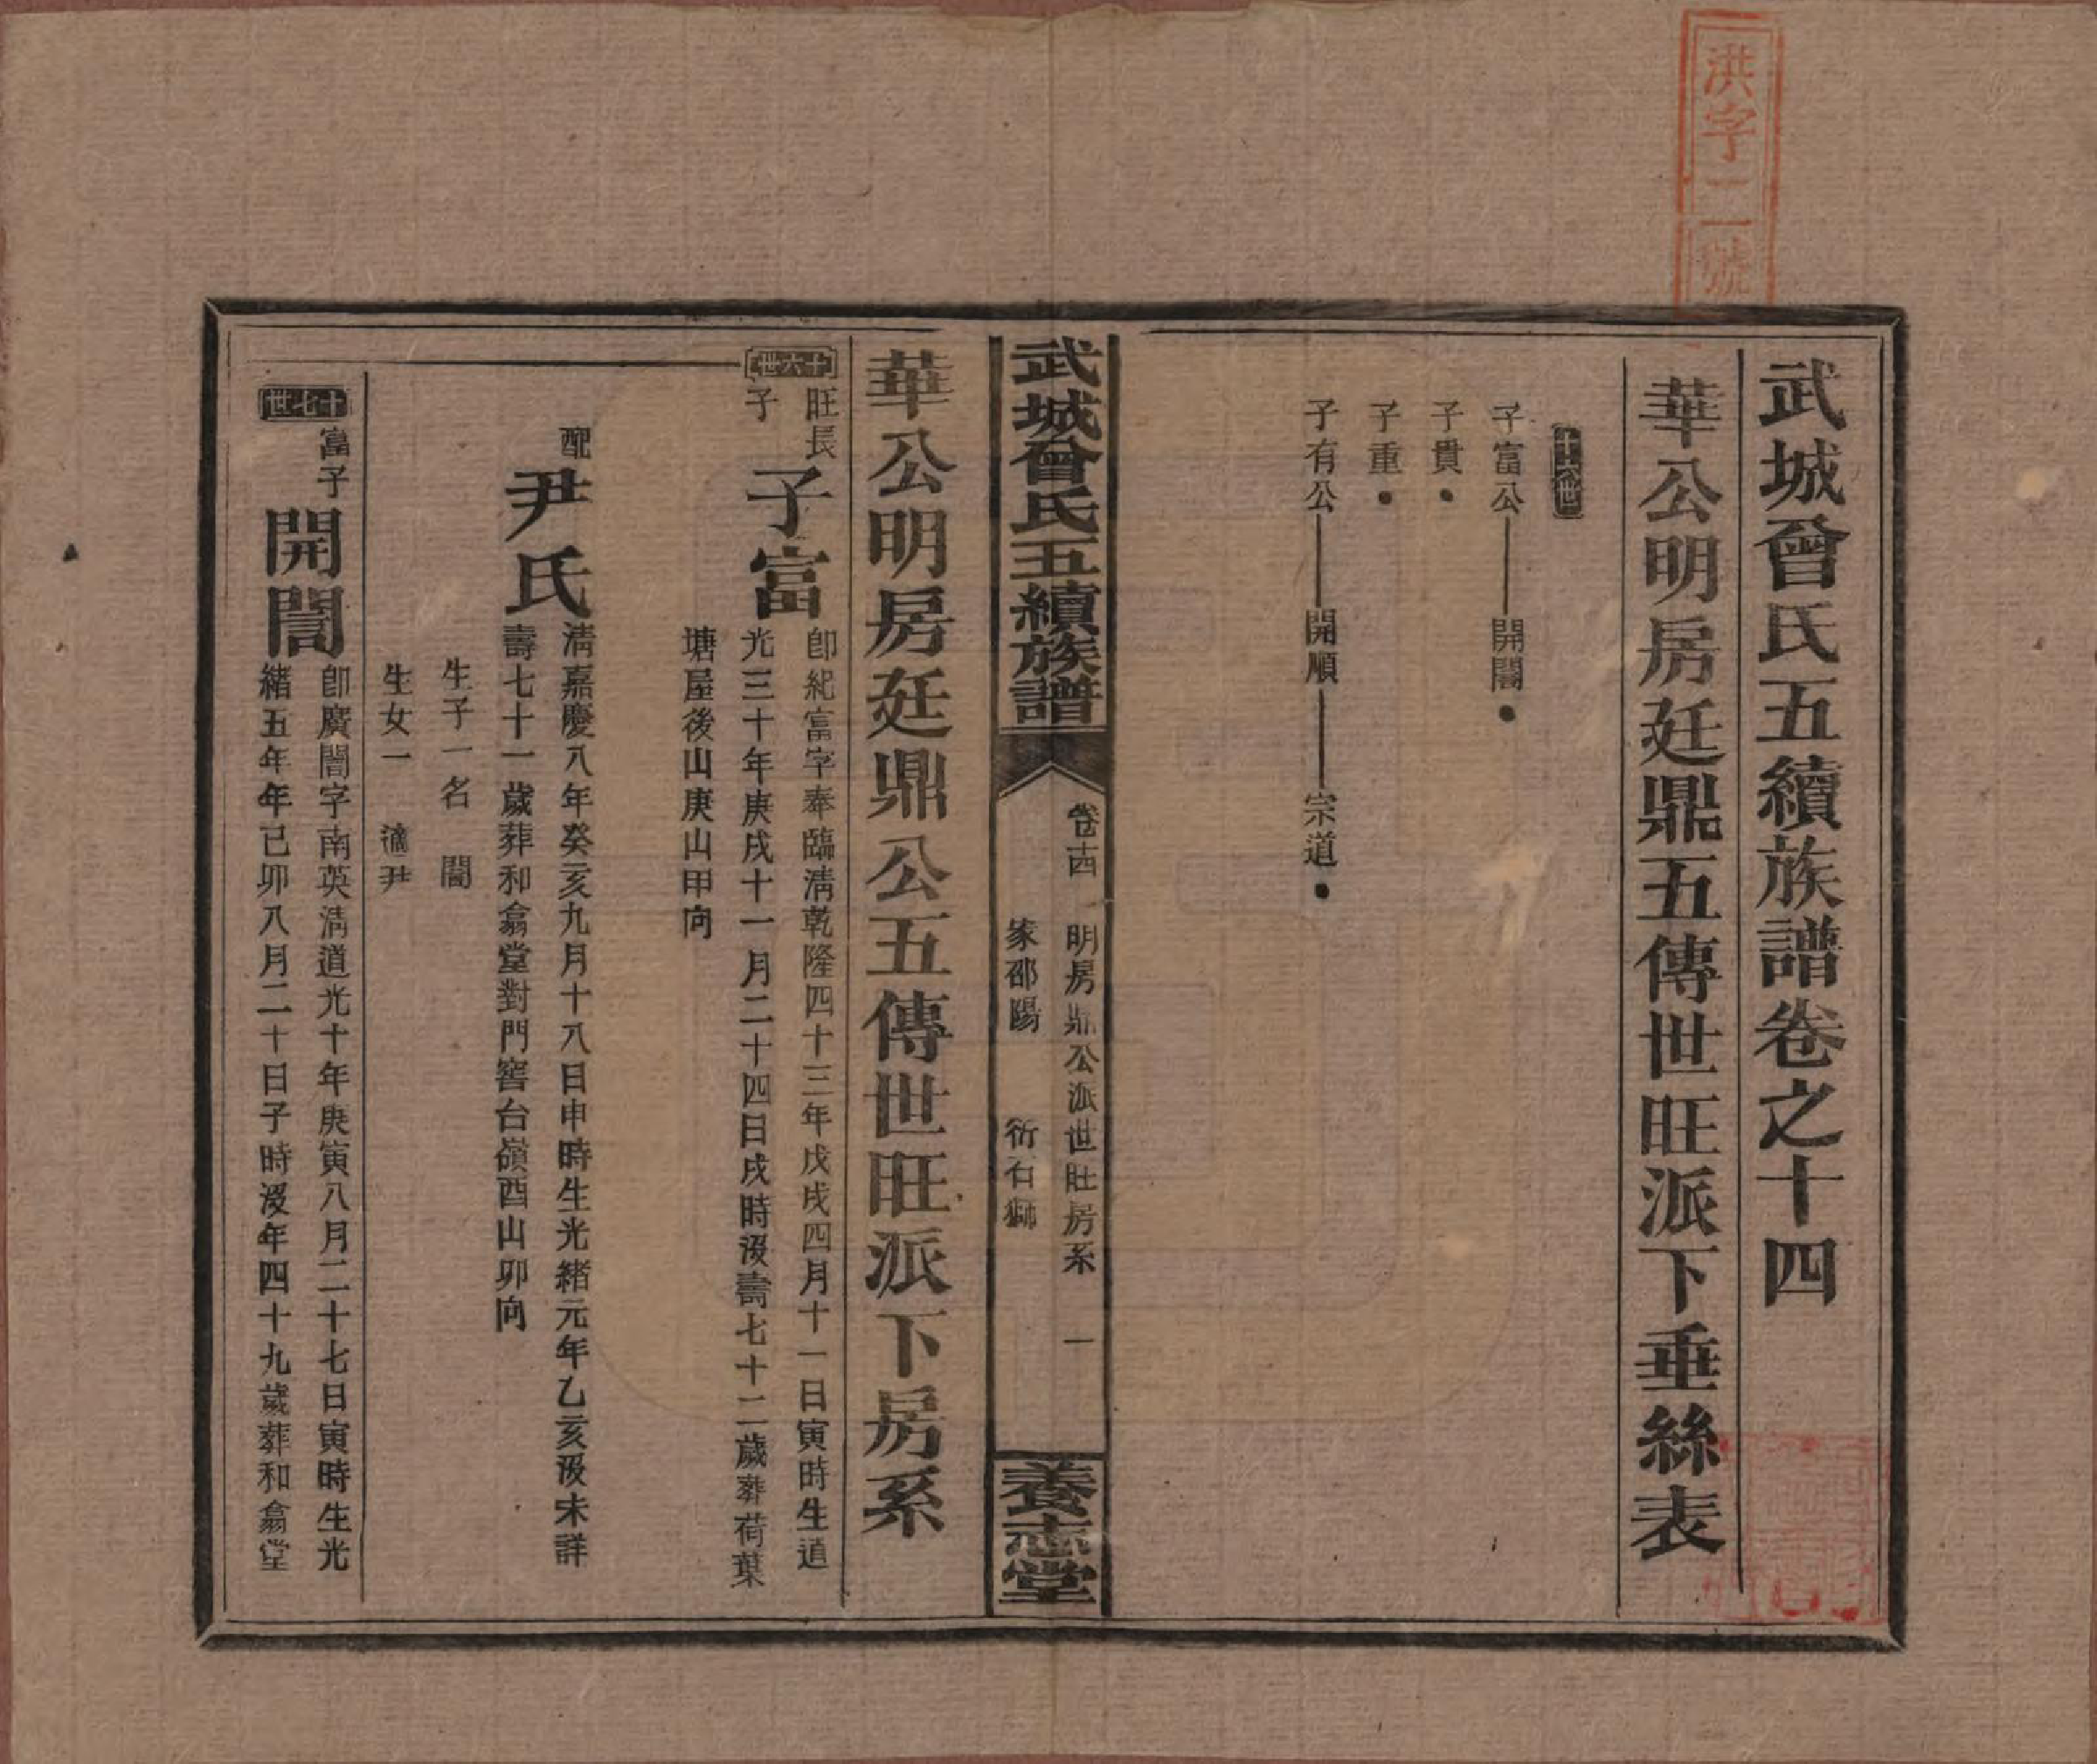 洪字二號
武城曾氏五續族譜卷之十四
華公明房廷鼎五傳世旺派下垂絲表
十六世
子富公——開誾●
子貴●
子重●
子有公——開順——宗道●
武城曾氏五續族譜
卷十四 明房鼎公派世旺房系 一
家邵陽 衍石獅
養志堂
華公明房廷鼎公五傳世旺派下房系
十六世
旺長子 子富
卽紀富字奉臨淸乾隆四十三年戊戌四月十一日寅時生道
光三十年庚戌十一月二十四日戌時歿壽七十二歲葬荷葉
塘屋後山庚山甲向
配 尹氏
淸嘉慶八年癸亥九月十八日申時生光緒元年乙亥歿未詳
壽七十一歲葬和翕堂對門窖台嶺酉山卯向
生子一名 誾
生女一 適尹
十七世
富子 開誾
卽廣誾字南英淸道光十年庚寅八月二十七日寅時生光
緒五年年已卯八月二十日子時歿年四十九歲葬和翕堂